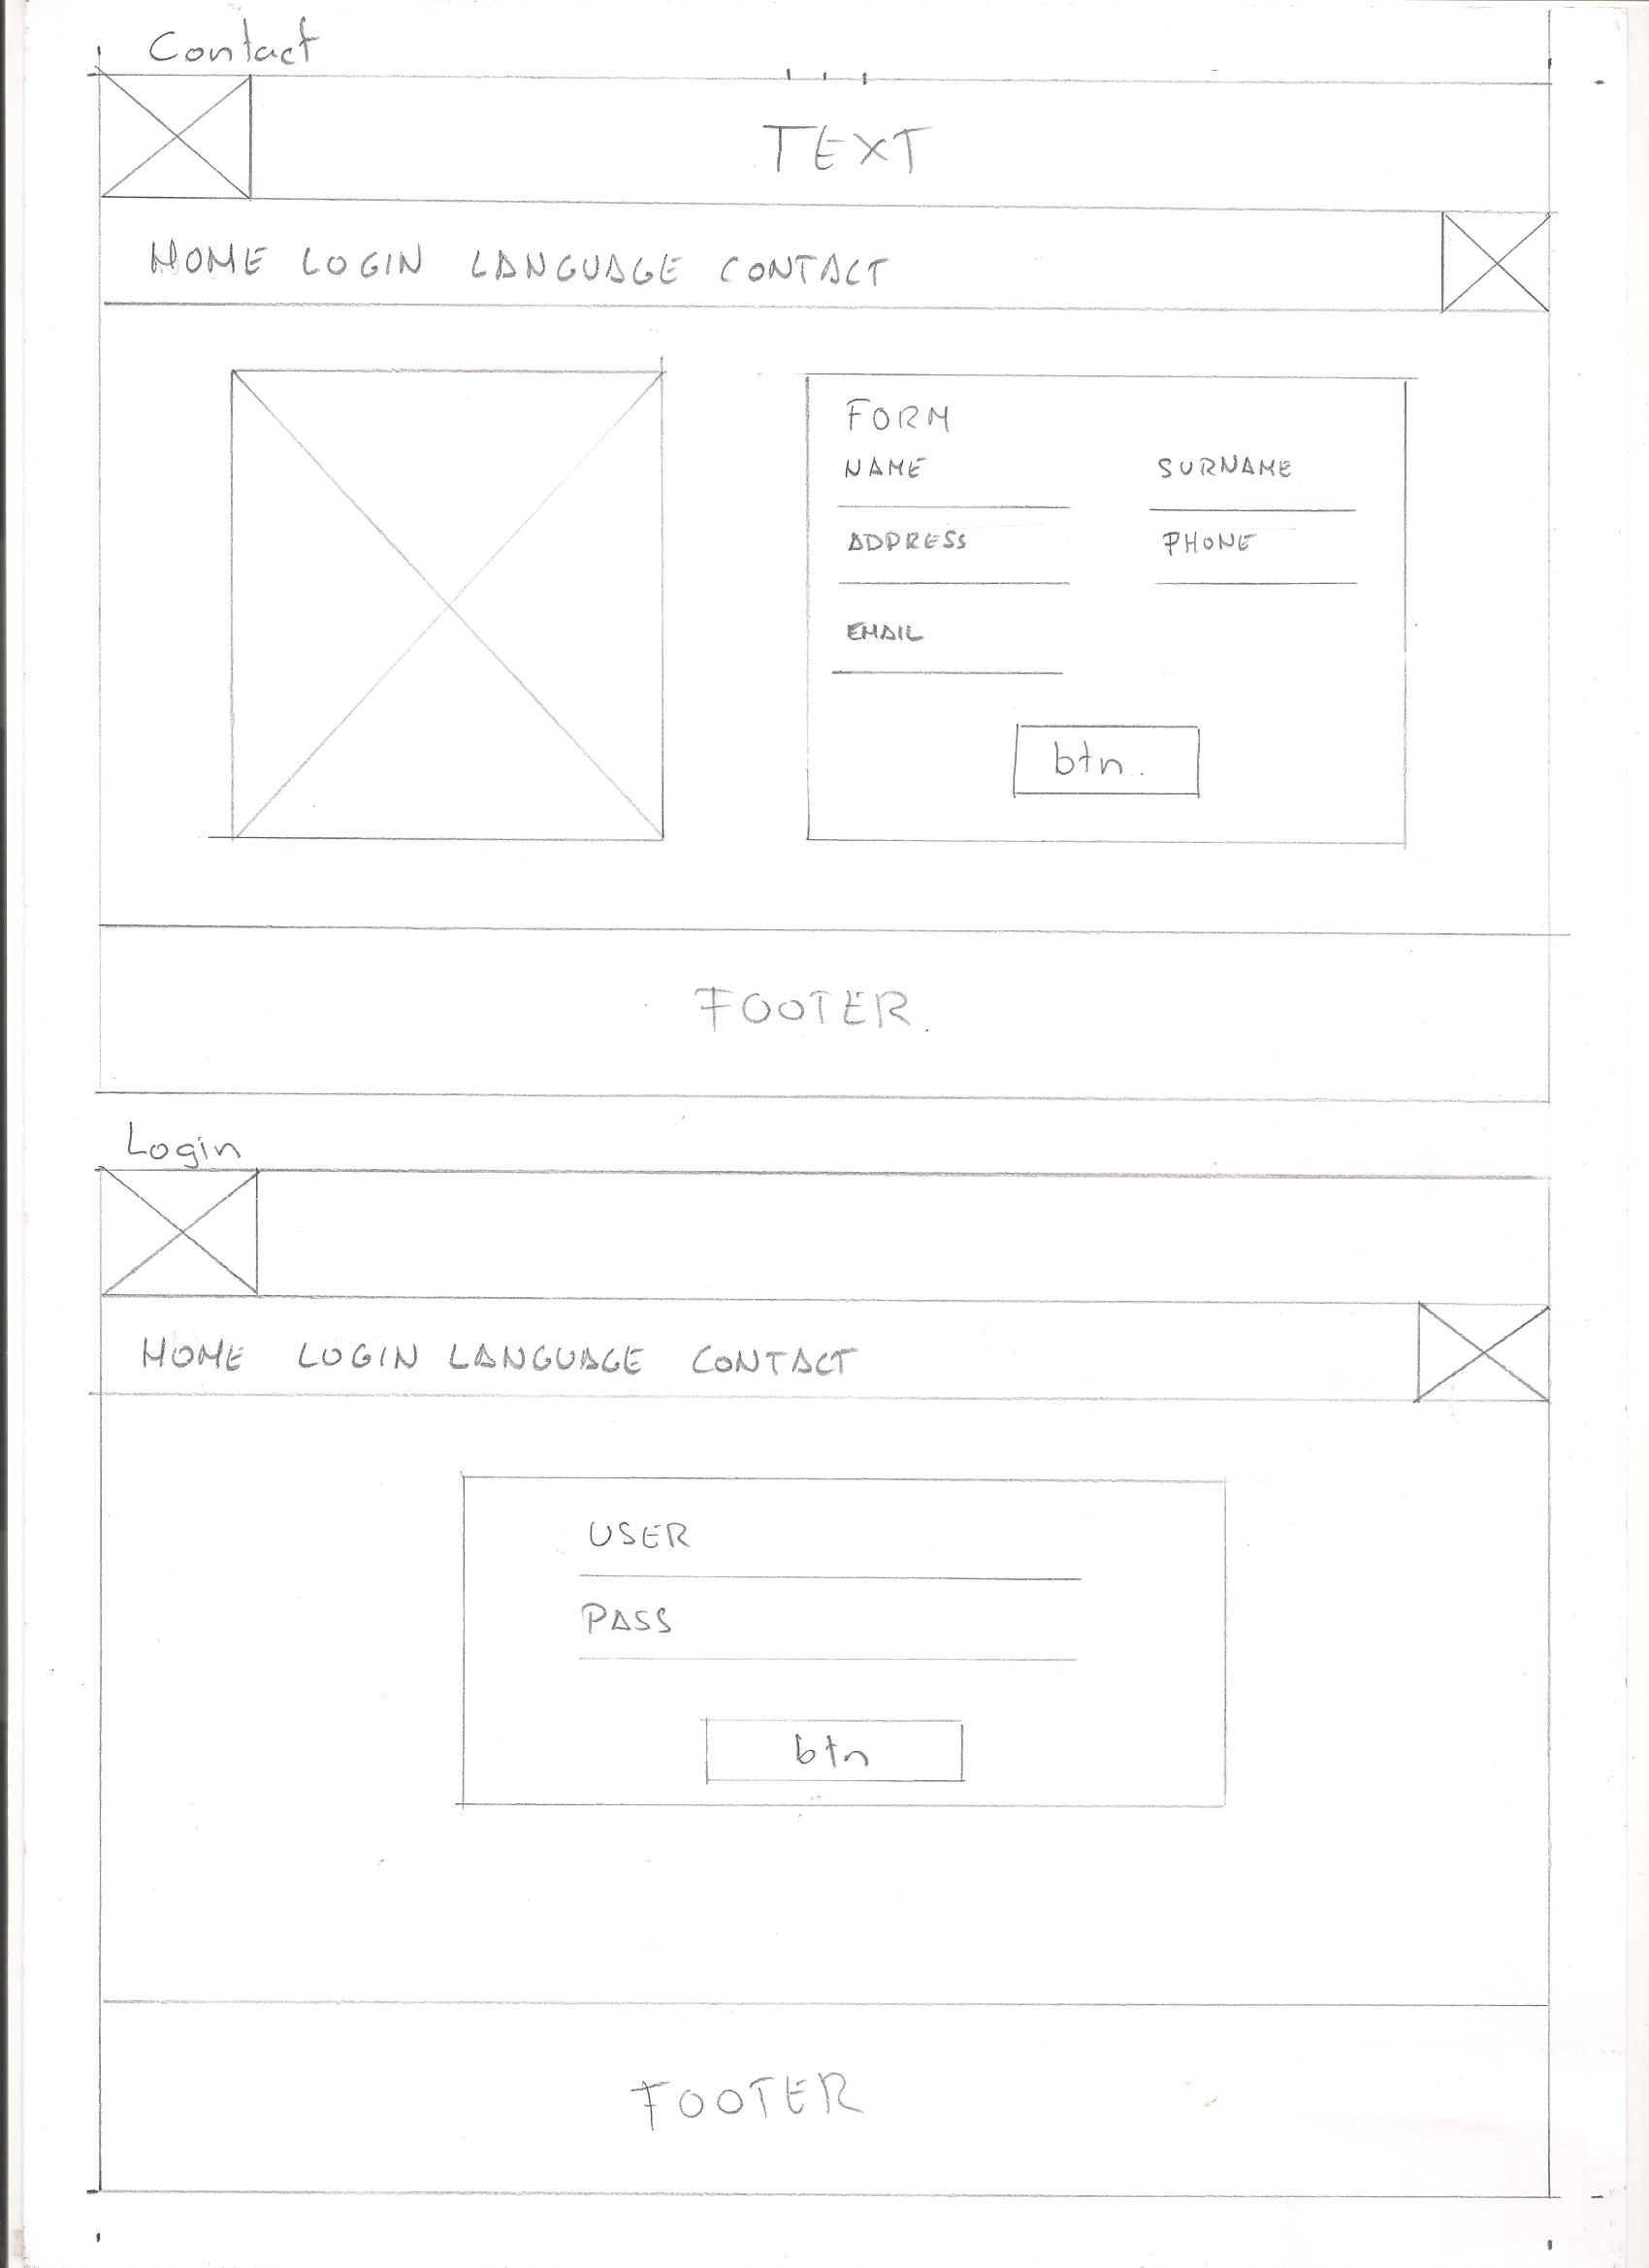 Contact
TEXT
HOME LOGIN LANGUAGE CONTACT
FORM
NAME SURNAME
ADDRESS PHONE
EMAIL
btn.
FOOTER.
Login
HOME LOGIN LANGUAGE CONTACT
USER
PASS
btn
FOOTER